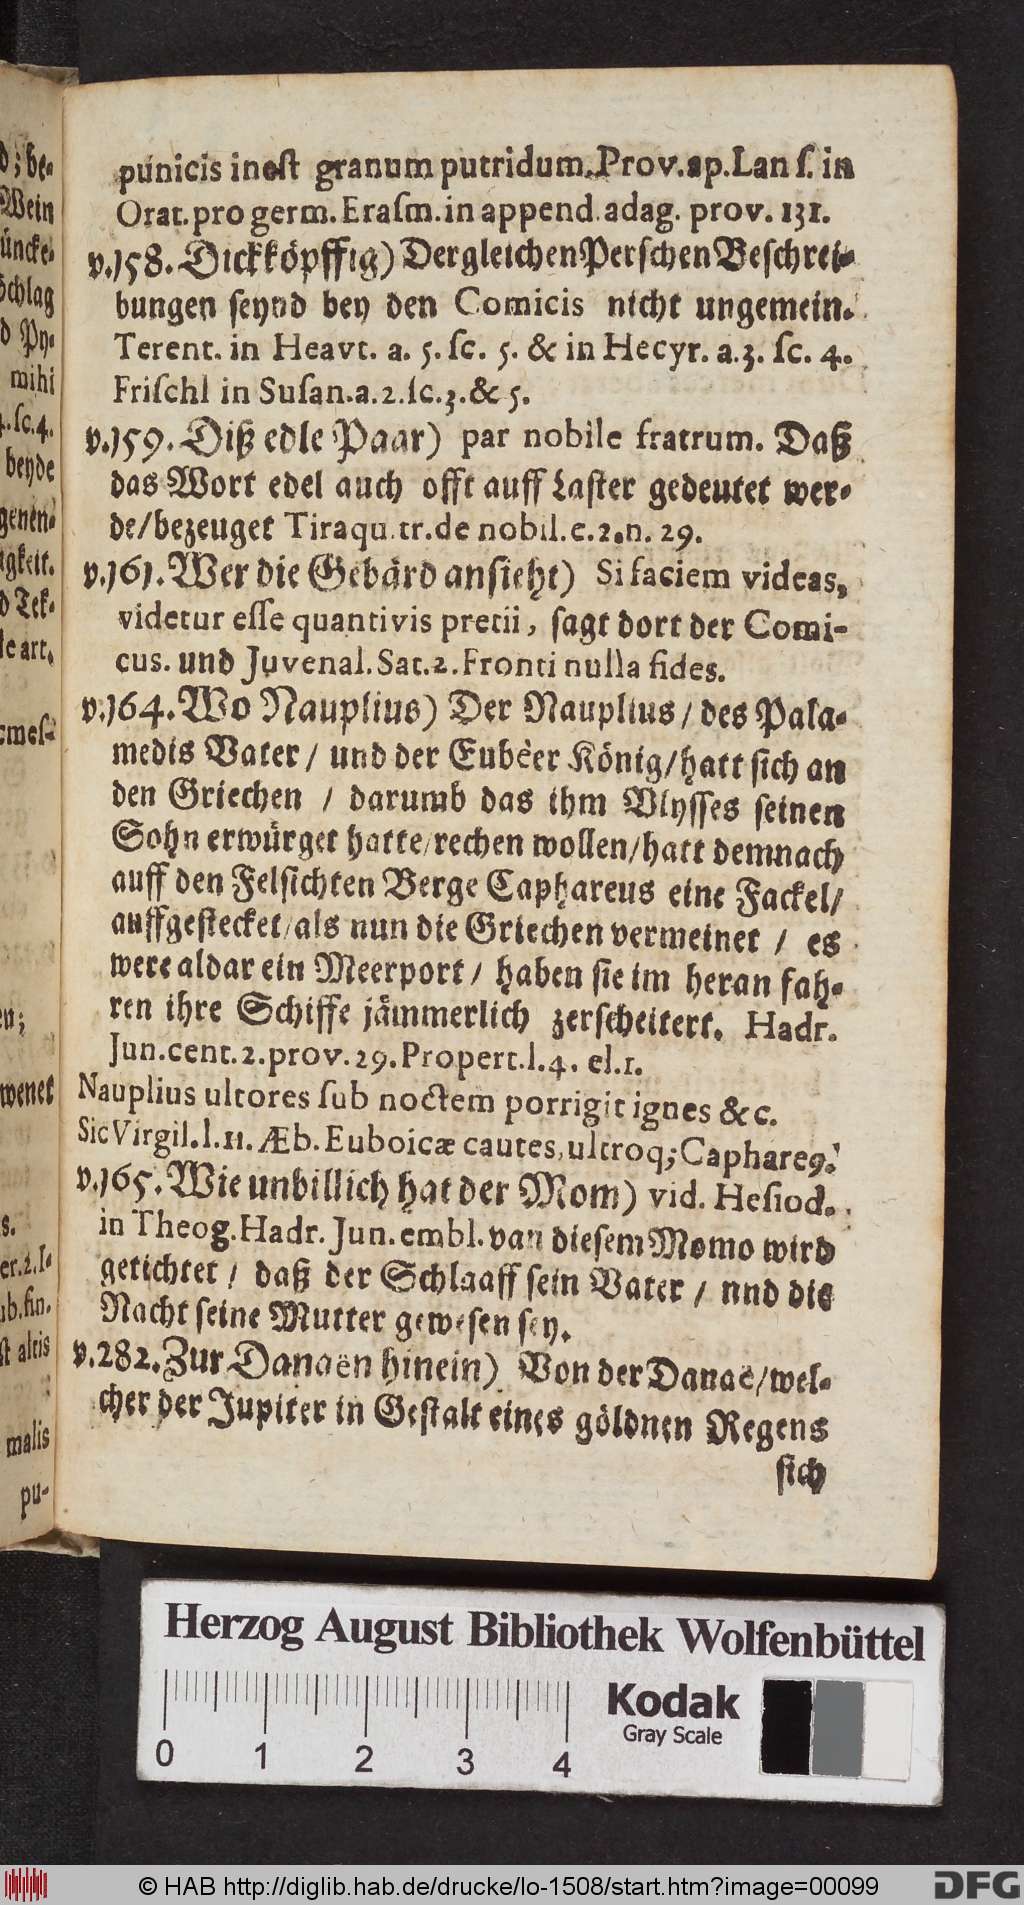 punicis inest granum putridum. Prov. ap. Lan ſ. in
Orat. pro germ. Eraſm. in append. adag. prov. 131.
v. 158. Dickköpffig) Dergleichen Perſchen Beſchrei-
bungen ſeynd bey den Comicis nicht ungemein.
Terent. in Heavt. a. 5. ſc. 5. & in Hecyr. a. 3. ſc. 4.
Friſchl in Suſan. a. 2. ſc. 3. & 5.
v. 159. Diß edle Paar) par nobile fratrum. Daß
das Wort edel auch offt auff Laſter gedeutet wer-
de / bezeuget Tiraqu. tr. de nobil. c. 2. n. 29.
v. 161. Wer die Gebärd anſieht) Si faciem videas,
videtur eſſe quantivis pretii, ſagt dort der Comi-
cus. und Juvenal. Sat. 2. Fronti nulla fides.
v. 164. Wo Nauplius) Der Nauplius / des Pala-
medis Vater / und der Eubèer König / hatt ſich an
den Griechen / darumb das ihm Vlyſſes ſeinen
Sohn erwürget hatte / rechen wollen / hatt demnach
auff den Felſichten Berge Caphareus eine Fackel /
auffgeſtecket / als nun die Griechen vermeinet / es
were aldar ein Meerport / haben ſie im heran fah-
ren ihre Schiffe jämmerlich zerſcheitert. Hadr.
Jun. cent. 2. prov. 29. Propert. l. 4. el. 1.
Nauplius ultores ſub noctem porrigit ignes &c.
Sic Virgil. l. 11. Æb. Euboicæ cautes, ultroq; Caphare9.
v. 165. Wie unbillich hat der Mom) vid. Heſiod.
in Theog. Hadr. Jun. embl. van dieſem Momo wird
getichtet / daß der Schlaaff ſein Vater / nnd die
Nacht ſeine Mutter geweſen ſey.
v. 282. Zur Danaën hinein) Von der Danaë / wel-
cher der Jupiter in Geſtalt eines göldnen Regens
ſich
d; be-
Wein
üncke-
öchlag
d Py-
mihi
4. ſc. 4.
beyde
genen-
igkeit.
d Tek-
le art.
cmeſ-
en;
wenet
s.
er. 2. I-
ub. fin.
ſt altis
malis
pu-
Herzog August Bibliothek Wolfenbüttel
Kodak
Gray Scale
0 1 2 3 4
© HAB http://diglib.hab.de/drucke/lo-1508/start.htm?image=00099
DFG